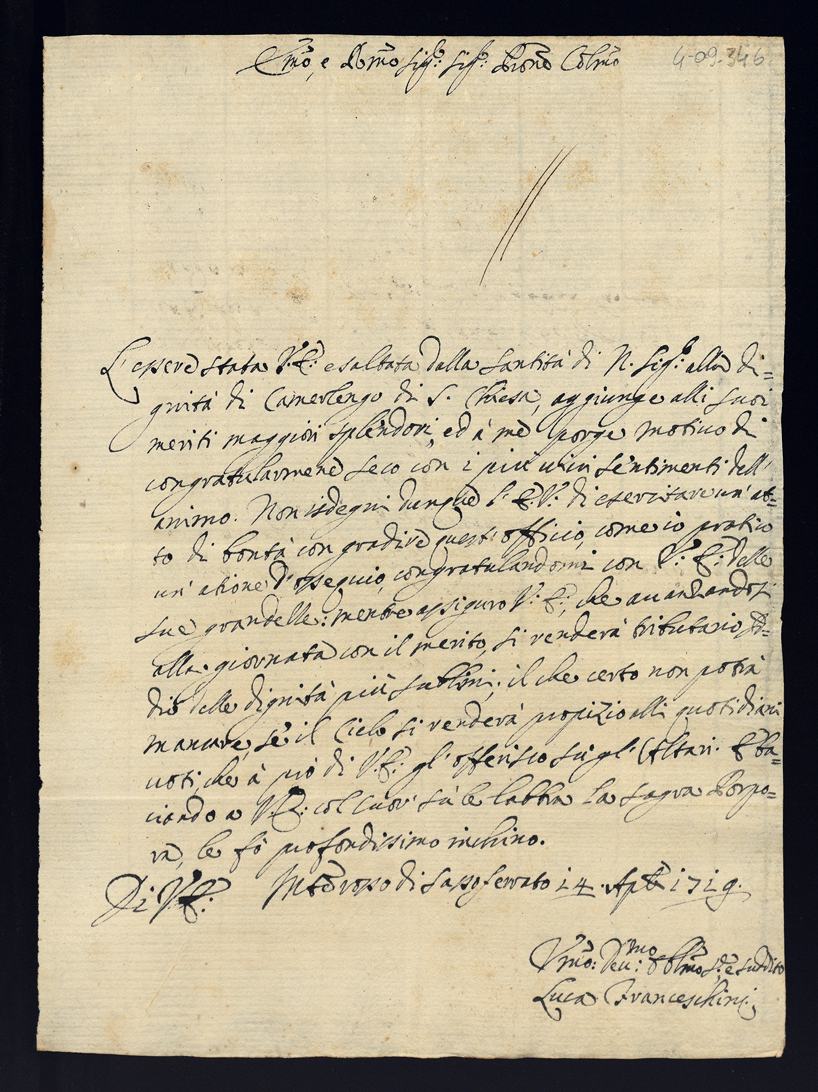 Em̃o, e Rm̃o Sig.r Sig.r Pron̄e Colm̃o
4-09.346
L'essere stata V. E: esaltata dalla Santità di N. Sig.re alla di=
gnità di Camerlengo di S. Chiesa, aggiunge alli suoi
meriti maggiori splendori, ed à me porge motivo di
congratularmene seco con i più vivi sentimenti dell'
animo. Non isdegni dunque l'E. V. di esercitare un'at=
to di bontà con gradire quest'officio, come io pratico
un'azione d'ossequio, congratulandomi con V: E: delle
sue grandezze: mentre assiguro V: E:, che avanzandosi
alla giornata con il merito, si renderà tributario
delle dignità più sublimi; il che certo non potrà
mancare, se il Cielo si renderà propizio alli quotidiani
voti, che à prò di V. E: gl'offerisco sù gl'Altari. E ba=
ciando a V. E: col cuor sù le labbra la sagra Porpo=
ra, le fò profondissimo inchino.
Di V. E: di Sassoferrato 14. Aple 1719.
Vm̃o: Dev:mo Obblm̃o e suddito
Luca Franceschini